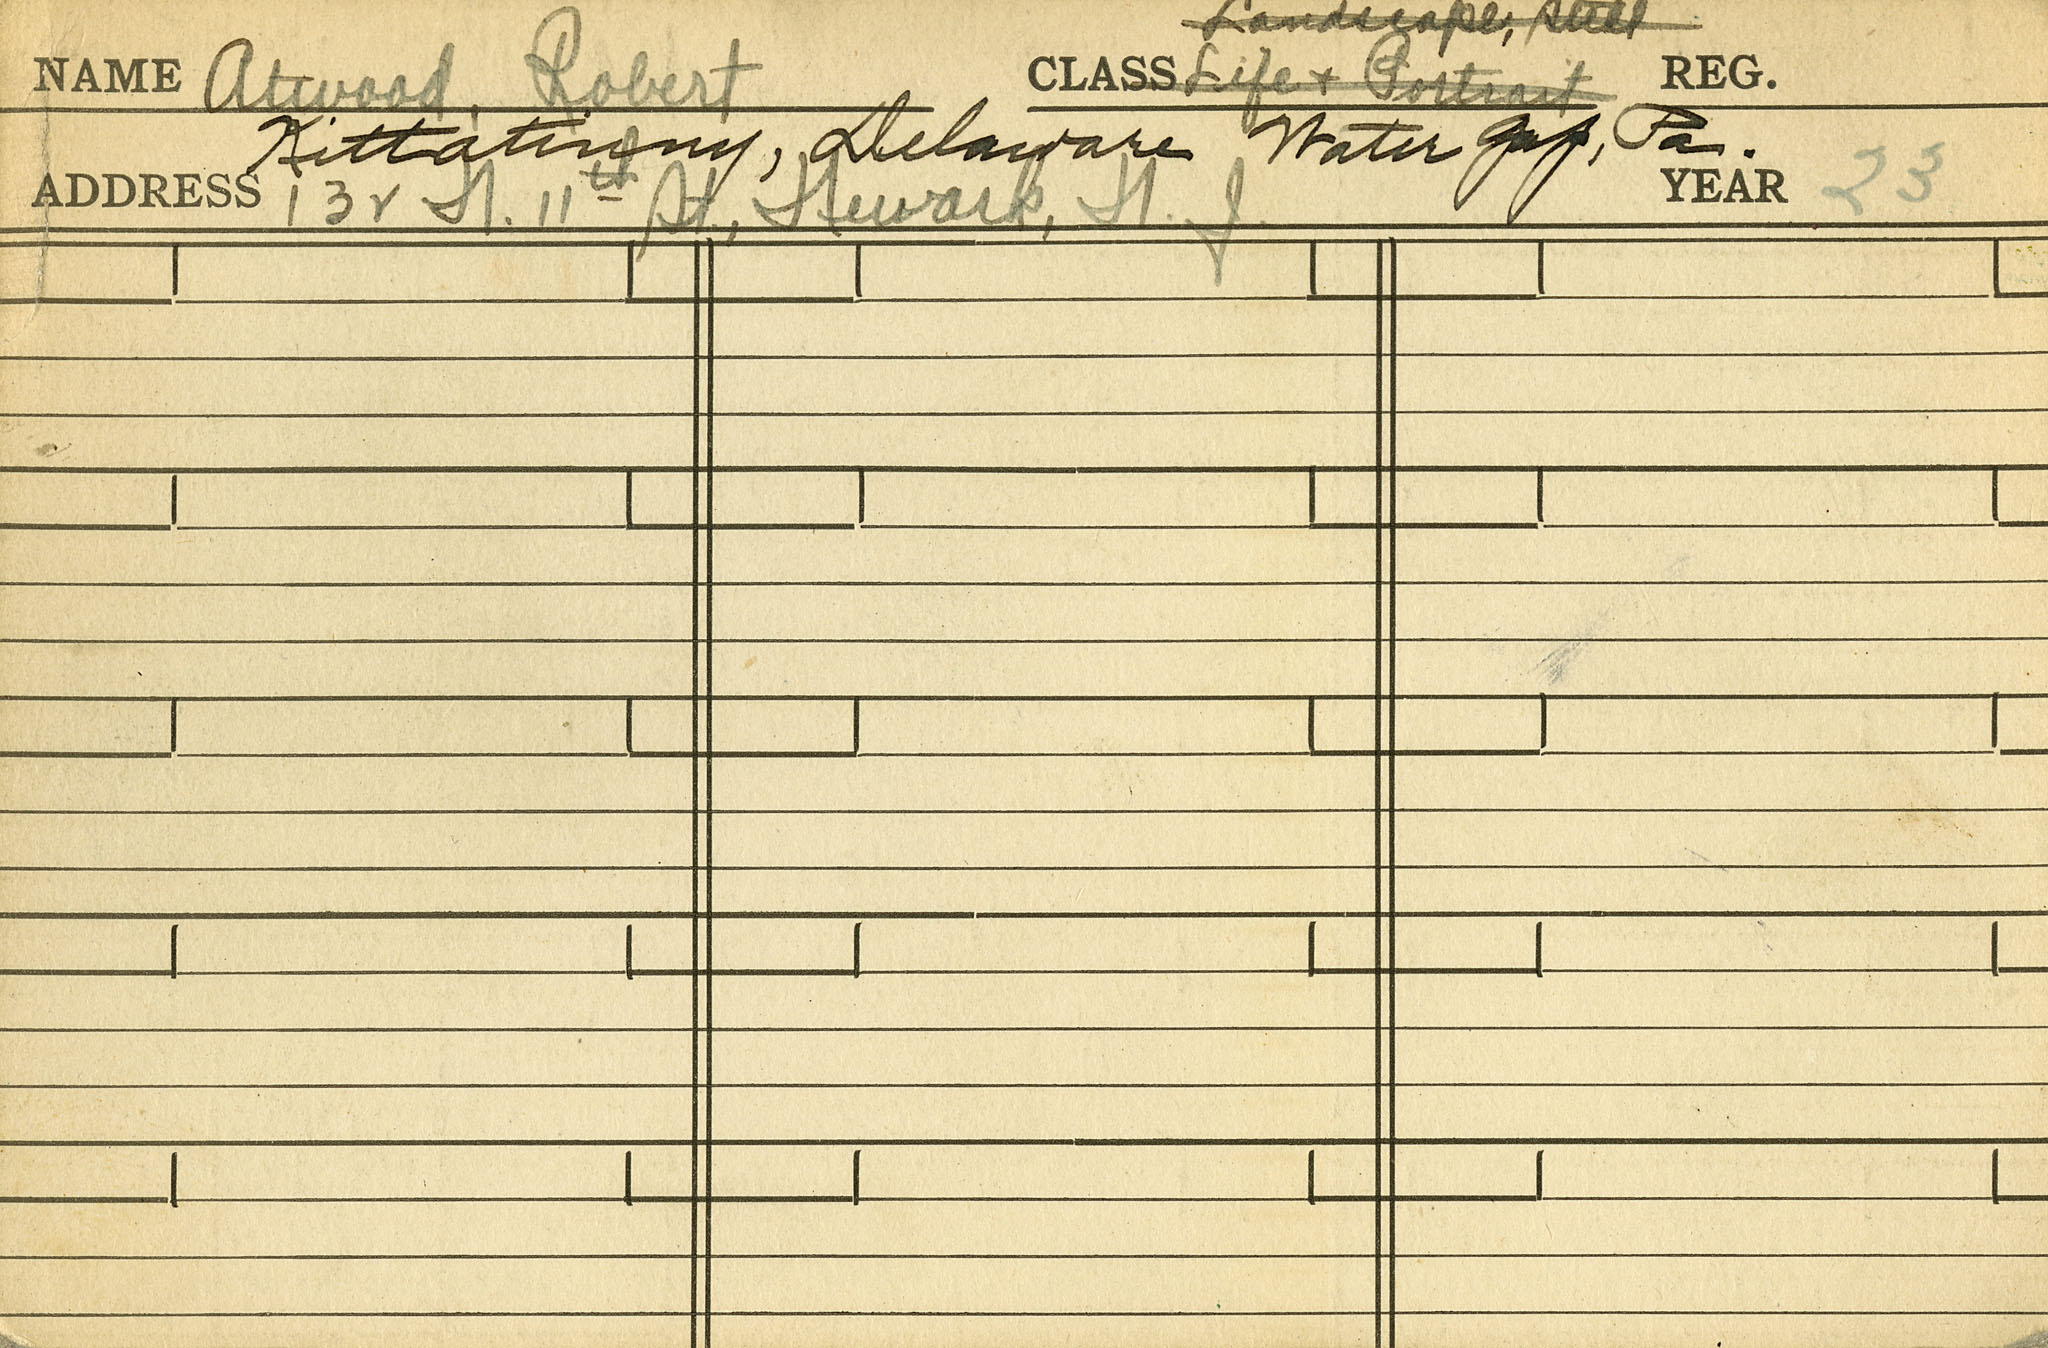 Landscape, Still
NAME Atwood, Robert CLASS Life + Portrait REG.
Kittatinny, Delaware Water Gap, Pa.
ADDRESS 132 N. 11th St., Newark, N. J. YEAR 23